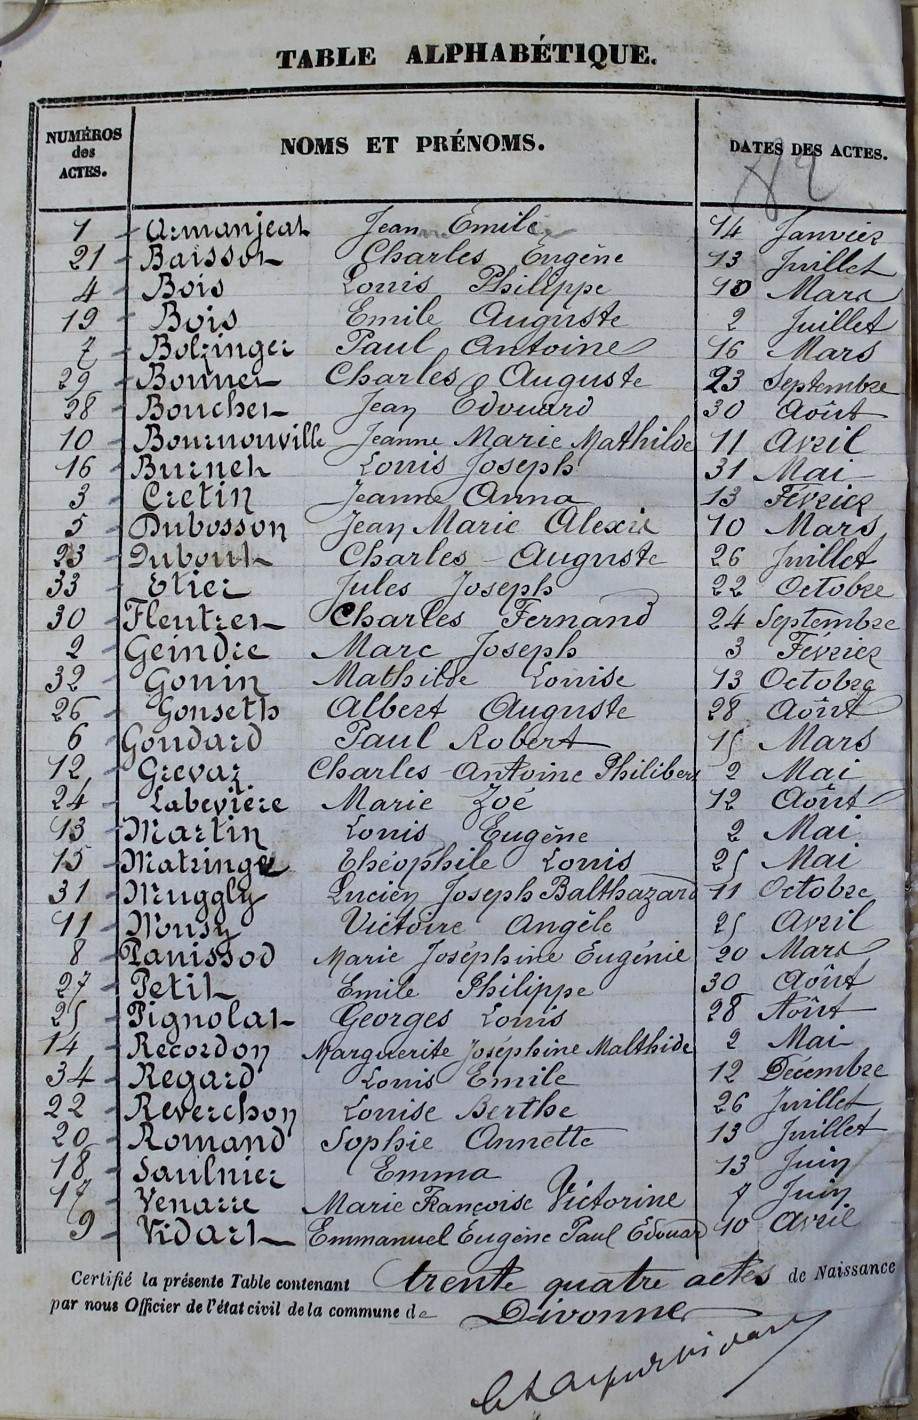 TABLE ALPHABÉTIQUE.
NUMÉROS des ACTES. NOMS ET PRÉNOMS. DATES DES ACTES.
82
1 Armanjeat Jean Emile 14 Janvier
21 Baisson Charles Eugène 13 Juillet
4 Bois Louis Philippe 10 Mars
19 Bois Emile Auguste 2 Juillet
7 Bolzinger Paul Antoine 16 Mars
29 Bonnet Charles Auguste 23 Septembre
28 Boucher Jean Edouard 30 Août
10 Bournonville Jeanne Marie Mathilde 11 Avril
16 Burnet Louis Joseph 31 Mai
3 Cretin Jeanne Anna 13 Février
5 Dubosson Jean Marie Alexis 10 Mars
23 Dubout Charles Auguste 26 Juillet
33 Etier Jules Joseph 22 Octobre
30 Fleutret Charles Fernand 24 Septembre
2 Geindre Marc Joseph 3 Février
32 Gonin Mathilde Louise 13 Octobre
26 Gonseth Albert Auguste 28 Août
6 Goudard Paul Robert 15 Mars
12 Grevaz Charles Antoine Philibert 2 Mai
24 Labevière Marie Zoé 12 Août
13 Martin Louis Eugène 2 Mai
15 Matringe Théophile Louis 25 Mai
31 Muggly Lucien Joseph Balthazard 11 Octobre
11 Victoire Angèle 25 Avril
8 Panissod Marie Joséphine Eugénie 20 Mars
27 Petit Emile Philippe 30 Août
25 Pignolat Georges Louis 28 Août
14 Recordon Marguerite Joséphine Malthide 2 Mai
34 Regard Louis Emile 12 Décembre
22 Reverchon Louise Berthe 26 Juillet
20 Romand Sophie Annette 13 Juillet
18 Saulnier Emma 13 Juin
17 Venarre Marie Françoise Victorine 7 Juin
9 Vidart Emmanuel Eugène Paul Edouard 10 Avril
Certifié la présente Table contenant trente quatre actes de Naissance
par nous Officier de l'état civil de la commune de Divonne